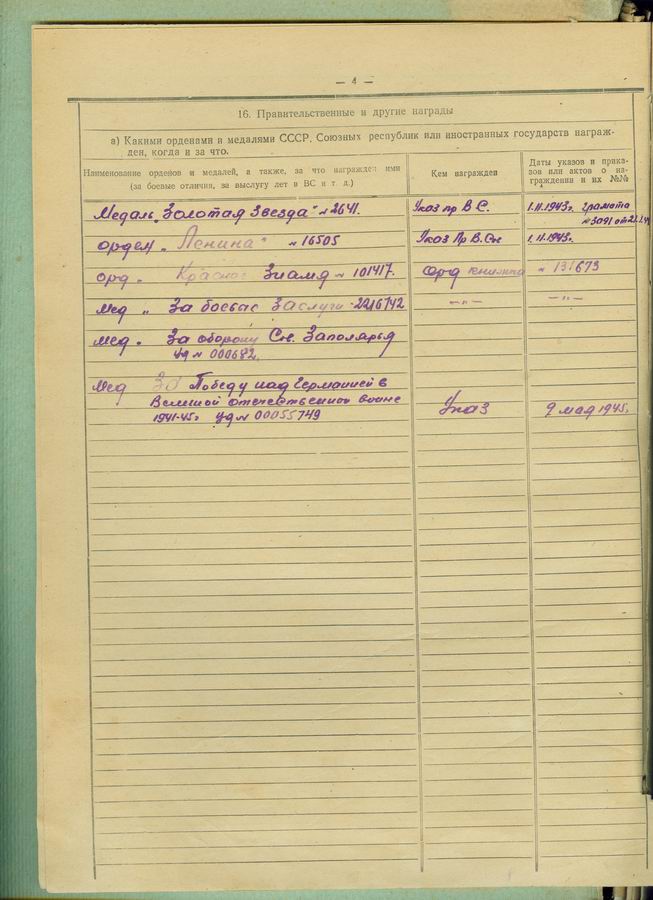 — 4 —
16. Правительственные и другие награды
а) Какими орденами и медалями СССР, Союзных республик или иностранных государств награж-
ден, когда и за что.
Наименование орденов и медалей, а также, за что награжден ими
(за боевые отличия, за выслугу лет в ВС и т. д.)
Кем награжден
Даты указов и прика-
зов или актов о на-
граждении и их №№
Медаль „Золотая Звезда" № 2641. Указ пр В. С. 1.11.1943г. грамота
№ 3091 от
орден „Ленина" № 16505 Указ Пр В. Сов 1.11.1943г.
орд „ Красное Знамя № 101417. Орд книжка № 131673
мед „ За боевые Заслуги - 2216742 —„—  —„—
мед „ За оборону Сов. Заполярья
уд № 000682.
мед За Победу над Германией в
Великой отечественной войне
1941-45г уд № 00055749 Указ 9 мая 1945г.